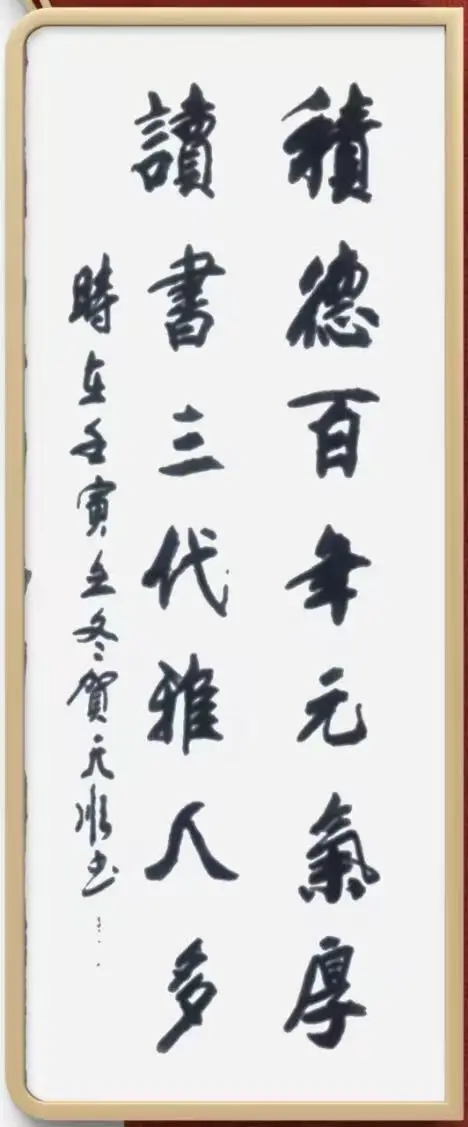 積德百年元氣厚
讀書三代雅人多
時在壬寅立冬賀元順书